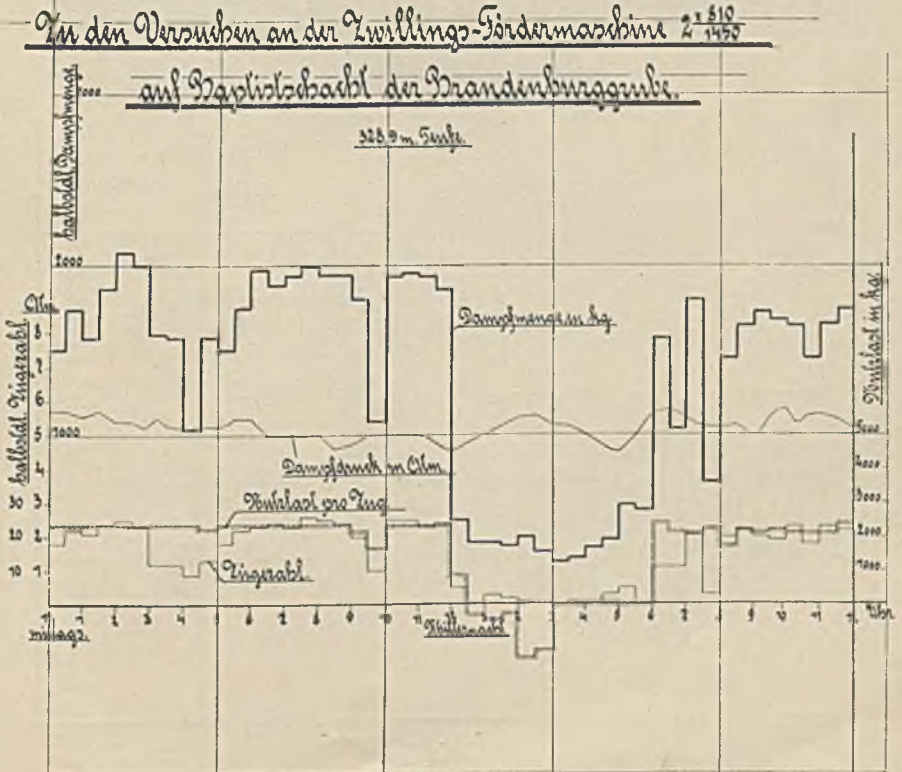 Zu den Versuchen an der Zwillings-Fördermaschine 2 × 810 / 1450
auf Baptistschacht der Brandenburggrube.
323,9 m. Teufe.
halbstdl. Dampfmenge.
2000
1000
Atm.
halbstdl. Zügezahl
8
7
6
5
4
30 3
2
10 1
Dampfmenge in kg.
Dampfdruck in Atm.
Nutzlast pro Zug
Zügezahl.
Nutzlast in kg.
5000
4000
3000
2000
1000
mittags.
Mitternacht
Uhr